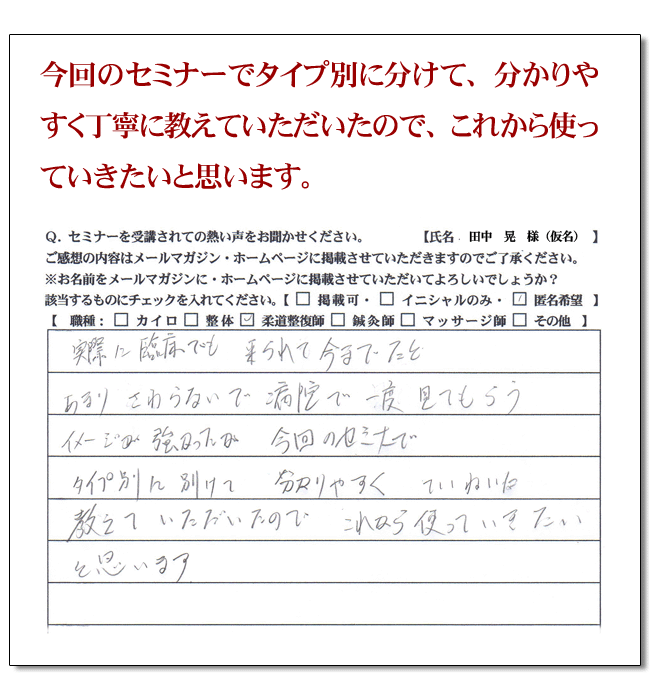 今回のセミナーでタイプ別に分けて、分かりや
すく丁寧に教えていただいたので、これから使っ
ていきたいと思います。
Q．セミナーを受講されての熱い声をお聞かせください。 【氏名 田中 晃 様（仮名） 】
ご感想の内容はメールマガジン・ホームページに掲載させていただきますのでご了承ください。
※お名前をメールマガジンに・ホームページに掲載させていただいてよろしいでしょうか？
該当するものにチェックを入れてください。【 □ 掲載可・ □ イニシャルのみ・ ☑ 匿名希望 】
【 職種： □ カイロ □ 整体 ☑ 柔道整復師 □ 鍼灸師 □ マッサージ師 □ その他 】
実際に臨床でも 来られて今までだと
あまり さわらないで 病院で 一度 見てもらう
イメージが 強かったが 今回のセミナーで
タイプ別に 別けて 分かりやすく ていねいに
教えて いただいたので これから使っていきたい
と思います